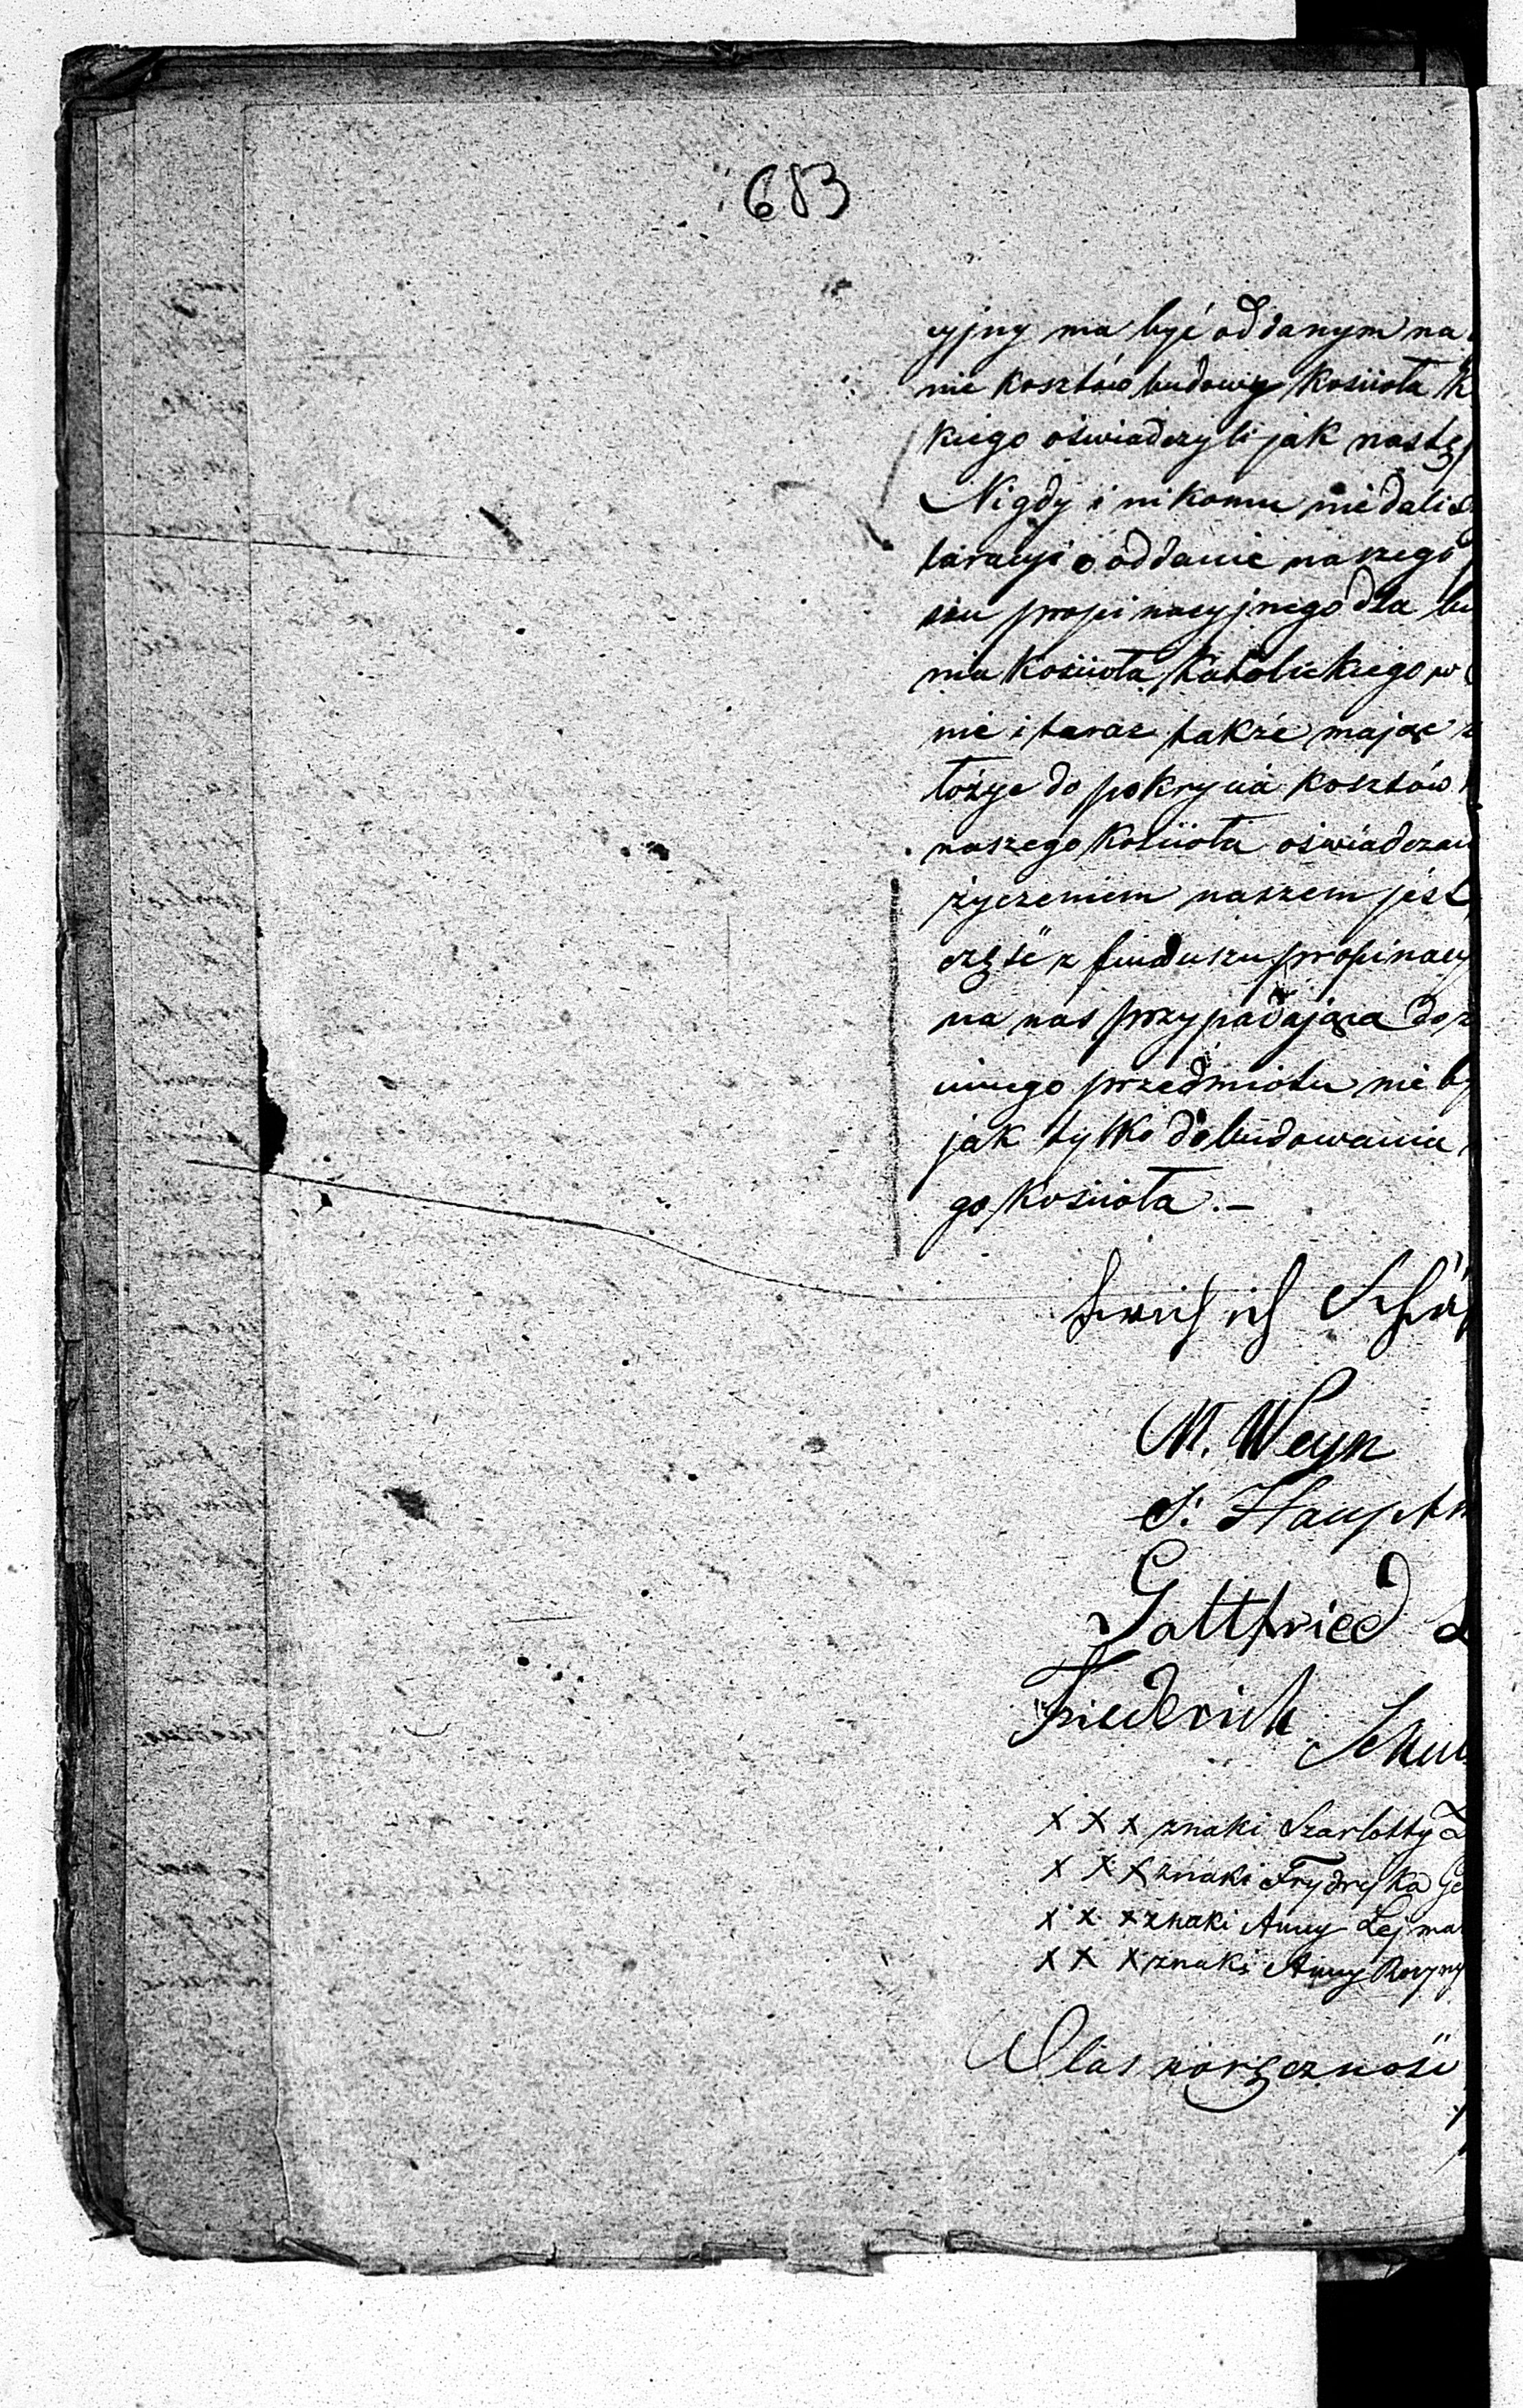 683
cyjny ma być oddanym na
nie kosztów budowy Kościoła K
kiego oświadczyli jak nastę
Nigdy i nikomu nie dali
laracyi o oddanie naszego
szu propinacyjnego dla bu
nia Kościoła Katolickiego w
nie i teraz także mając
łożyc do pokrycia kosztów
naszego Kościoła oświadczam
życzeniem naszem jest
część z funduszu propinacy
na nas przypadająca do
innego przedmiotu nie by
jak tylko do budowania
go Kościoła. —
M. Weyn
Hauptm
Gottfried
Friederich
x x x znaki Szarlotty
x x x znaki Frydryka Ge
x x x znaki Anny Lejma
x x x znaki Anny Rozyny
Własnoręczność